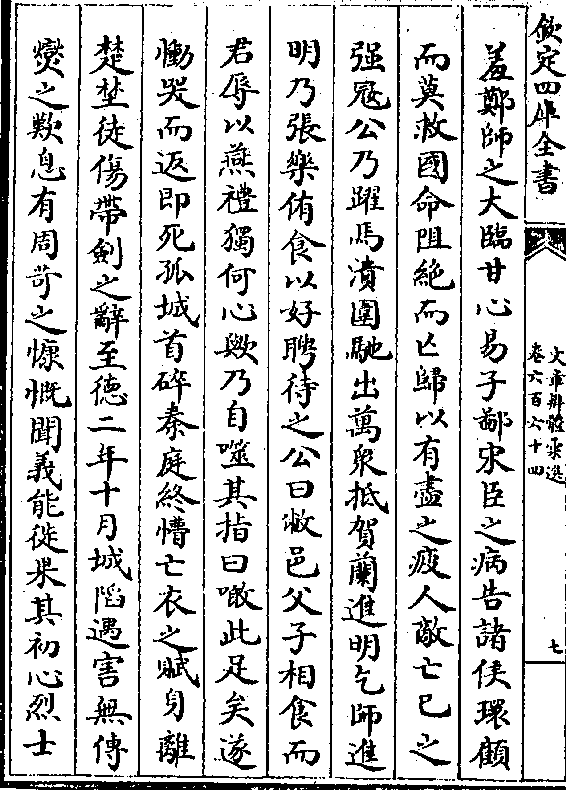 欽定四庫全書
文章辨體彙選
卷六百六十四
七
羞鄭師之大臨甘心易子鄙宋臣之病告諸侯環顧
而莫救國命阻絶而亡歸以有盡之疲人敵亡已之
强寇公乃躍馬潰圍馳出萬衆抵賀蘭進明乞師進
明乃張樂侑食以好聘待之公曰敝邑父子相食而
君辱以燕禮獨何心歟乃自噬其指曰噉此足矣遂
慟哭而返即死孤城首碎秦庭終懵亡衣之賦身離
楚埜徒傷帶劍之辭至德二年十月城陷遇害無傳
燮之歎息有周苛之慷慨聞義能徙果其初心烈士